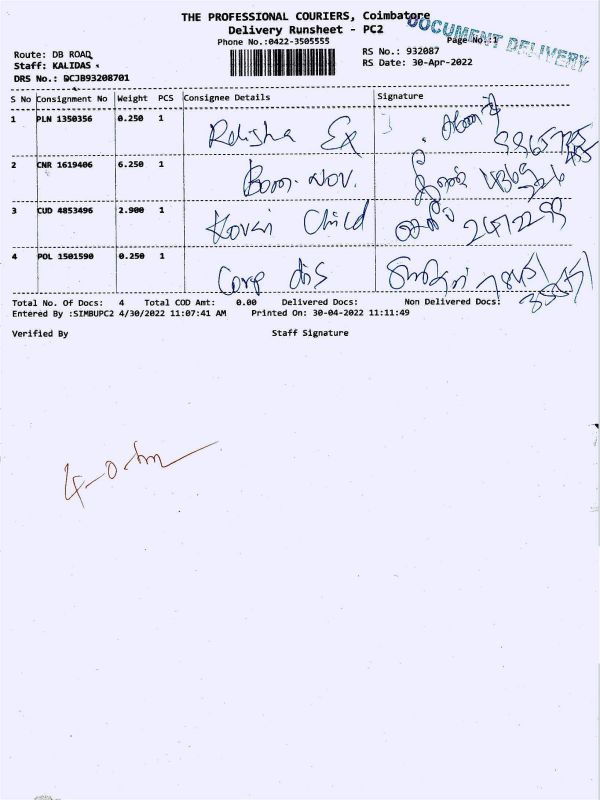 THE PROFESSIONAL COURIERS, Coimbatore
DOCUMENT DELIVERY
Delivery Runsheet - PC2
Phone No.:0422-3505555 Page No.:1
Route: DB ROAD RS No.: 932087
Staff: KALIDAS RS Date: 30-Apr-2022
DRS No.: DCJB93208701
S No Consignment No Weight PCS Consignee Details Signature
1 PLN 1350356 0.250 1 Ex
2 CNR 1619406 6.250 1 Bom. Nov.
3 CUD 4853496 2.900 1 Kovai Child
4 POL 1501590 0.250 1 Corp
Total No. Of Docs: 4 Total COD Amt: 0.00 Delivered Docs: Non Delivered Docs:
Entered By :SIMBUPC2 4/30/2022 11:07:41 AM Printed On: 30-04-2022 11:11:49
Verified By Staff Signature